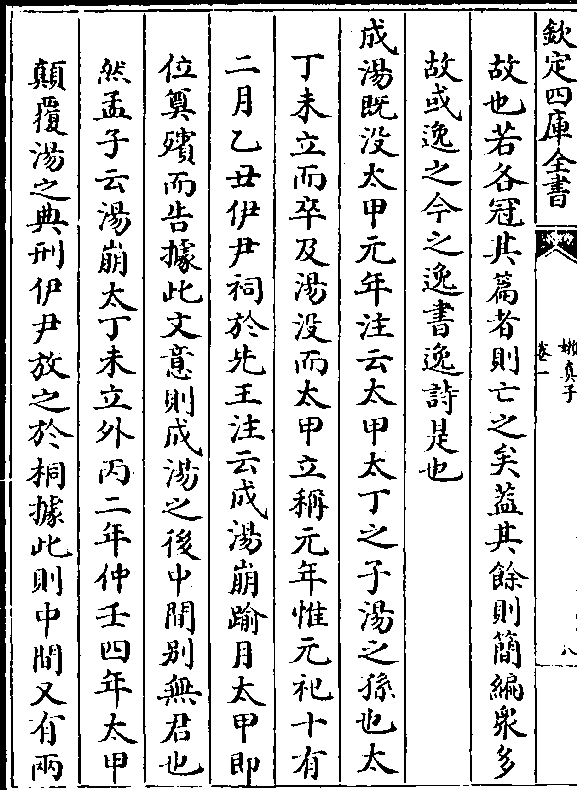 欽定四庫全書
嬾真子
卷一
八
故也若各冠其篇者則亡之矣葢其餘則簡編衆多
故或逸之今之逸書逸詩是也
成湯既没太甲元年注云太甲太丁之子湯之孫也太
丁未立而卒及湯没而太甲立稱元年惟元祀十有
二月乙丑伊尹祠於先王注云成湯崩踰月太甲即
位奠殯而告據此文意則成湯之後中間别無君也
然孟子云湯崩太丁未立外丙二年仲壬四年太甲
顛覆湯之典刑伊尹放之於桐據此則中間又有兩